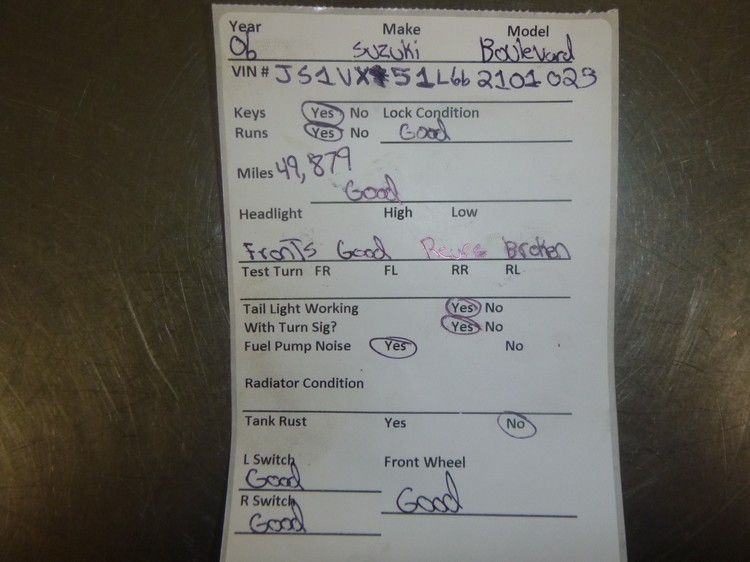 Year Make Model
06 Suzuki Boulevard
VIN # JS1VX51L662101023
Keys Yes No Lock Condition
Runs Yes No Good
Miles 49,879
Good
Headlight High Low
Fronts Good Rears Broken
Test Turn FR FL RR RL
Tail Light Working Yes No
With Turn Sig? Yes No
Fuel Pump Noise Yes No
Radiator Condition
Tank Rust Yes No
L Switch Front Wheel
Good
R Switch Good
Good